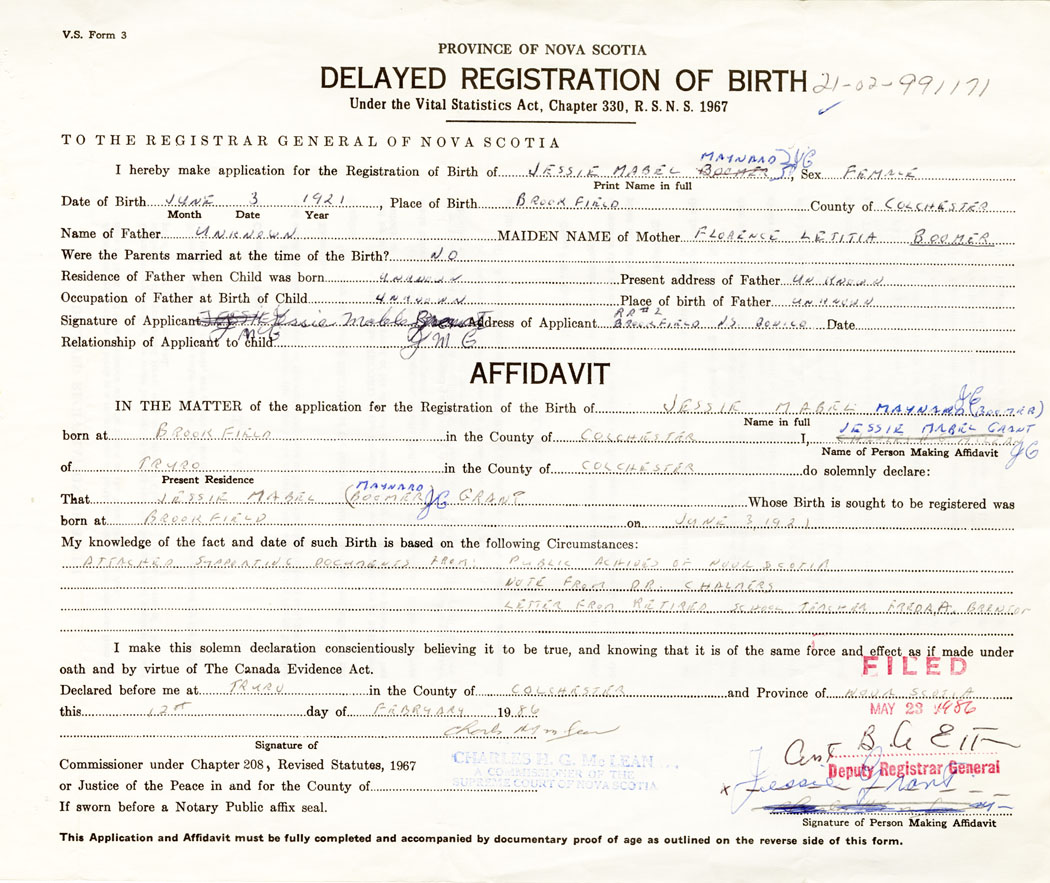 V.S. Form 3
PROVINCE OF NOVA SCOTIA
DELAYED REGISTRATION OF BIRTH 21-02-991171
Under the Vital Statistics Act, Chapter 330, R. S. N. S. 1967
TO THE REGISTRAR GENERAL OF NOVA SCOTIA
MAYNARD JG
I hereby make application for the Registration of Birth of JESSIE MABEL BOOMER, Sex FEMALE
Print Name in full
Date of Birth JUNE 3 1921, Place of Birth BROOKFIELD County of COLCHESTER
Month Date Year
Name of Father UNKNOWN MAIDEN NAME of Mother FLORENCE LETITIA BOOMER
Were the Parents married at the time of the Birth? NO
Residence of Father when Child was born UNKNOWN Present address of Father UNKNOWN
Occupation of Father at Birth of Child UNKNOWN Place of birth of Father UNKNOWN
RR#2
Signature of Applicant Jessie Mable Address of Applicant BROOKFIELD NS BON1C0 Date
Relationship of Applicant to child JMG JMG
AFFIDAVIT
JG
IN THE MATTER of the application for the Registration of the Birth of JESSIE MABEL MAYNARD (BOOMER)
Name in full
born at BROOKFIELD in the County of COLCHESTER I, JESSIE MABEL GRANT
Name of Person Making Affidavit JG
of TRURO in the County of COLCHESTER do solemnly declare:
Present Residence
MAYNARD
That JESSIE MABEL (BOOMER) JG GRANT Whose Birth is sought to be registered was
born at BROOKFIELD on JUNE 3, 1921
My knowledge of the fact and date of such Birth is based on the following Circumstances:
ATTACHED SUPPORTING DOCUMENTS FROM: PUBLIC ACHIVES OF NOVA SCOTIA
NOTE FROM DR. CHALMERS
LETTER FROM RETIRED SCHOOL TEACHER FREDA A.
I make this solemn declaration conscientiously believing it to be true, and knowing that it is of the same force and effect as if made under
oath and by virtue of The Canada Evidence Act.
FILED
Declared before me at TRURO in the County of COLCHESTER and Province of NOVA SCOTIA
this 12th day of FEBRYARY 1986
MAY 23 1986
Signature of
Commissioner under Chapter 208, Revised Statutes, 1967
CHARLES H. G. McLEAN
A COMMISSIONER OF THE
SUPREME COURT OF NOVA SCOTIA
Deputy Registrar General
or Justice of the Peace in and for the County of
x Jessie Grant
If sworn before a Notary Public affix seal.
Signature of Person Making Affidavit
This Application and Affidavit must be fully completed and accompanied by documentary proof of age as outlined on the reverse side of this form.